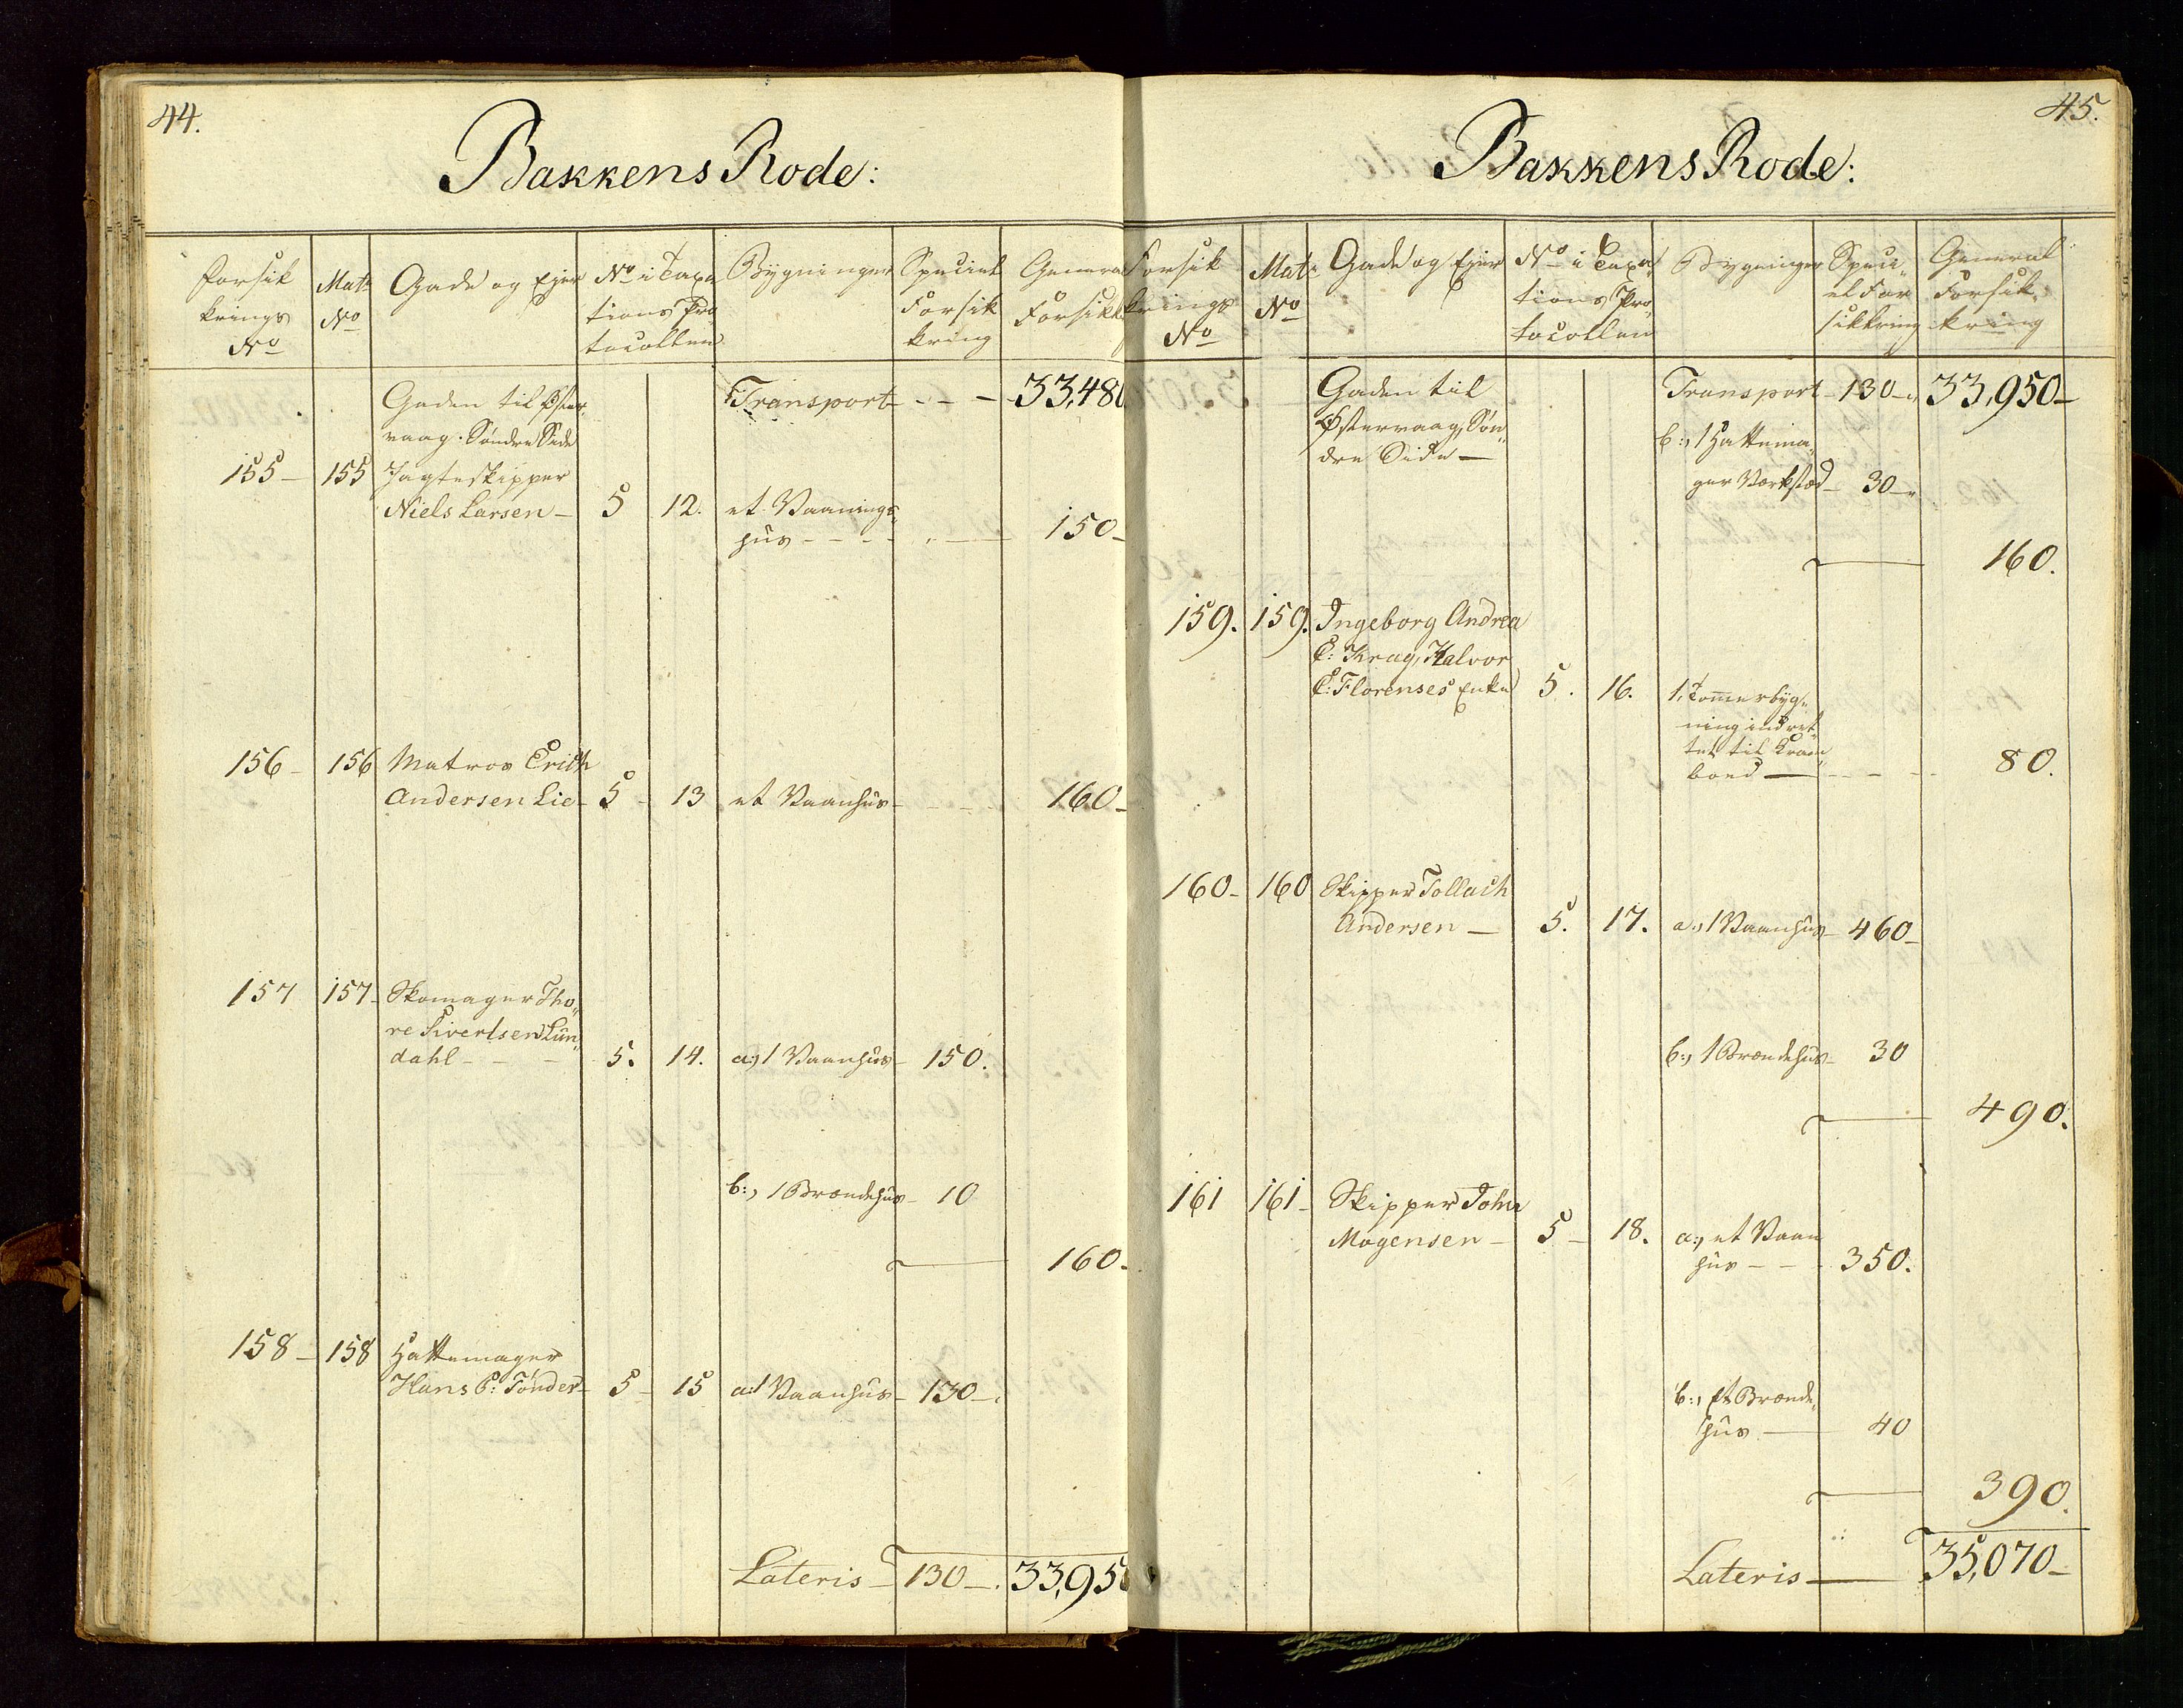 44.
Bakkens Rode:
Forsik
krings
No
Matr
No
Gade og Ejer
No i Taxa
tions Pro
tocollen
Bygninger
Speciel
Forsik
kring
General
Forsikk
Gaden til Øster
vaag. Søndre Side
Transport - - - 33,480
155 - 155 Jagteskipper
Niels Larsen - 5 12. et Vaanings
huus - - - - 150 -
156 - 156 Matros Erich
Andersen Lie - 5 - 13 et Vaanhuus - - - - 160 -
157 157 - Skomager Tho„
re Sivertsen Lun„
dahl - - - 5. 14. a:, 1 Vaanhuus - 150.
b:, 1 Brændehuus - 10
160 -
158 - 158 Hattemager
Hans P: Tønder - 5 - 15 a: 1 Vaanhuus - 130 -
Lateris - 130 -. 33,950
45.
Bakkens Rode:
Forsik
krings
No
Matr
No
Gade og Ejer
No i Taxa„
tions Pro„
tocollen
Bygninger
Speci„
el For
sikkring
General
Forsik„
kring
Gaden til
Østervaag, Søn„
dre Side -
Transport - 130 - 33,950 -
b:, 1 Hattema„
ger Værksted - 30 -
160.
159. 159. Ingeborg Andrea
C: Krag, Halvor
C: Florenses Enke 5. 16. 1, Tommerbyg„
ning indret„
tet til Kram„
boed - - - - 80.
160 - 160 Skipper Tollach
Andersen - 5. 17. a:, 1 Vaanhuus - 460 -
b:, 1 Brændehuus - 30
490.
161 161 - Skipper John
Mogensen - 5 - 18. a:, et Vaan
huus - - - 350.
b:, Et Brænde„
huus - 40
390.
Lateris - 35,070 -